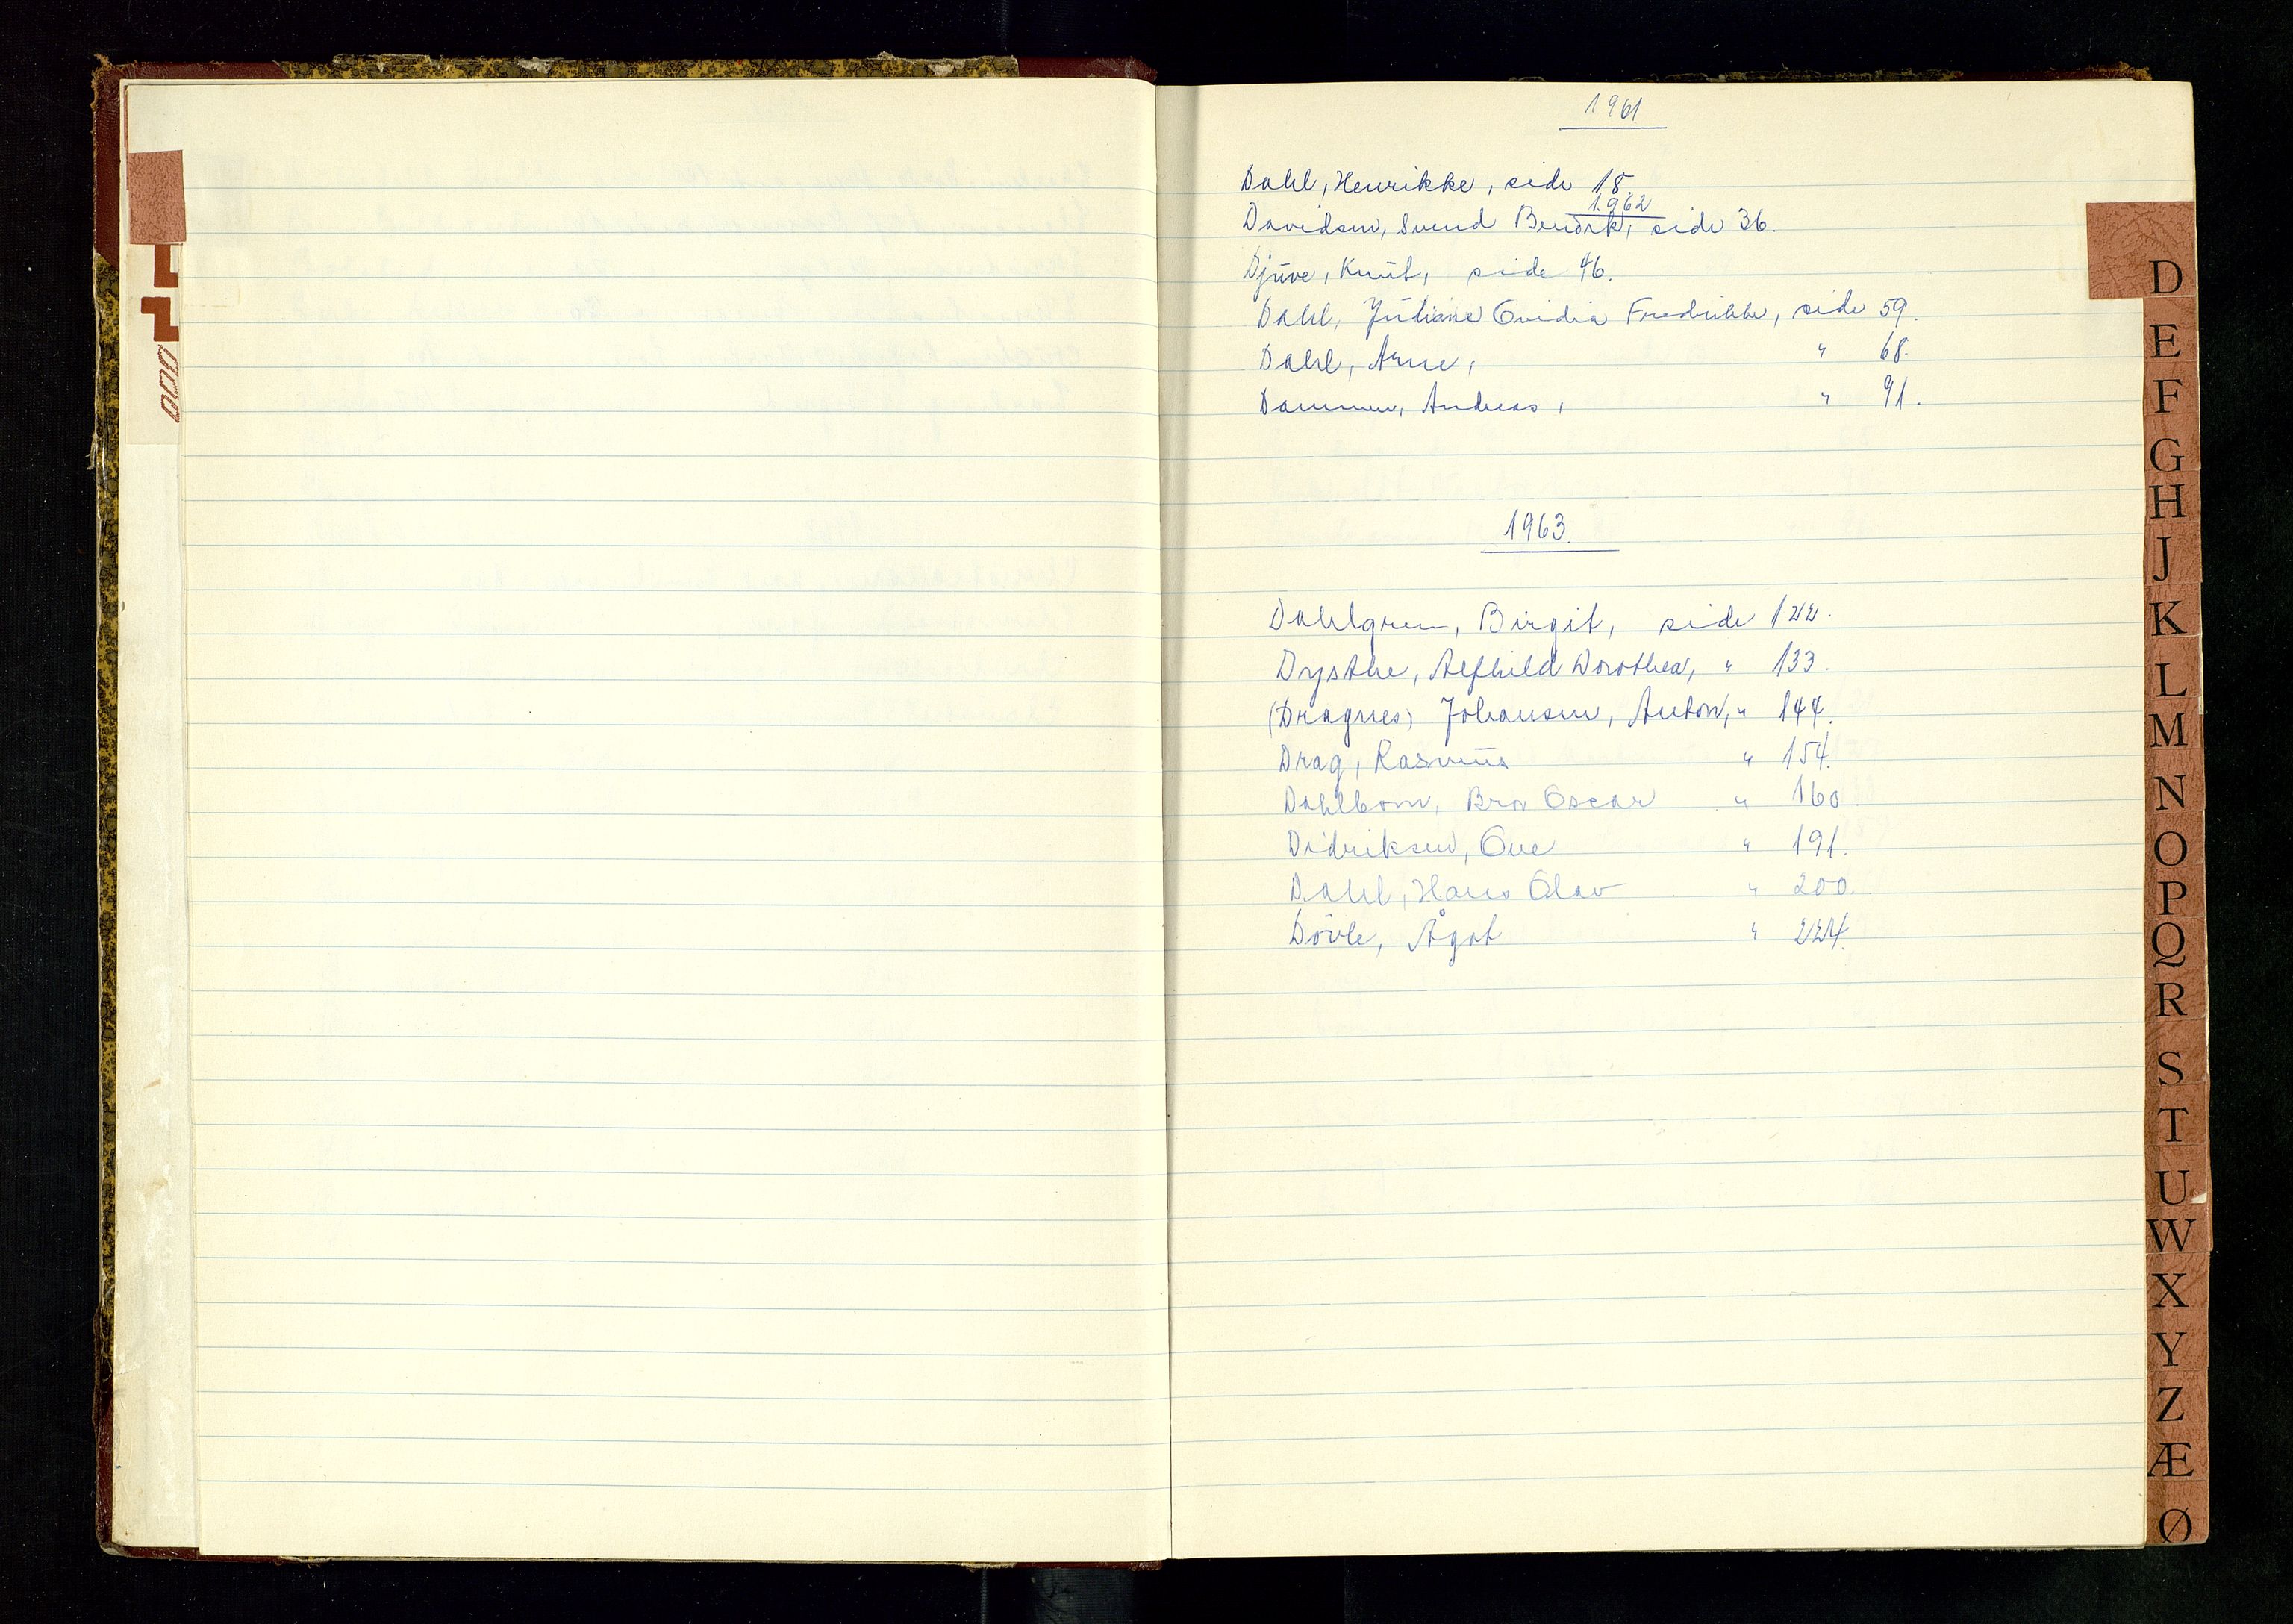 1961
Dahl, Henrikke, side 18.
1962
Davidsen, Svend Bendik, side 36.
Djuve, Knut, side 46.
Dahl, Juliane Ovidia Fredrikke, side 59.
Dahl, Arne, " 68.
Dammen, Andreas, " 91.
1963.
Dahlgren, Birgit, side 122.
Dysthe, Alfhild Dorothea, " 133.
(Dragnes) Johansen, Anton, " 144.
Drag, Rasmus " 154.
Dahlbom, Bror Oscar " 160.
Didriksen, Ove " 191.
Dahl, Hans Olav " 200.
Dövle, Ågot " 224.
D
E
F
G
H
J
K
L
M
N
O
P
Q
R
S
T
U
W
X
Y
Z
Æ
Ø